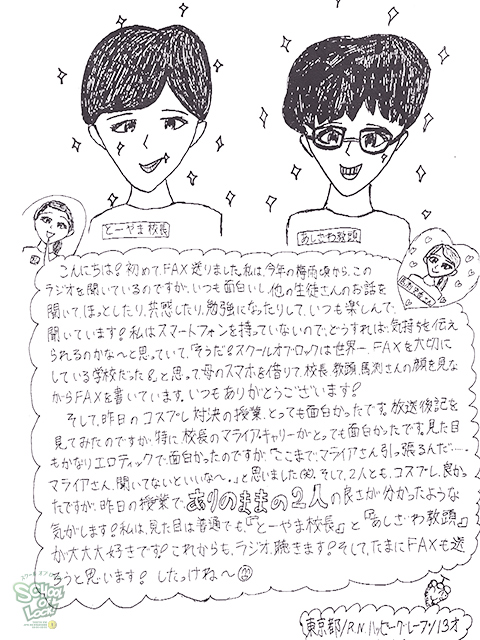 とーやま校長
あしざわ教頭
こんにちは!初めて、FAX送りました。私は、今年の梅雨頃から、この
ラジオを聞いているのですが、いつも面白いし、他の生徒さんのお話を
聞いて、ほっとしたり、共感したり、勉強になったりして、いつも楽しんで、
聞いています!私はスマートフォンを持っていないので、どうすれば、気持ちを伝え
られるのかな〜と思っていて、「そうだ!スクールオブロックは世界一、FAXを大切に
している学校だった!」と思って母のスマホを借りて、校長、教頭、馬渕さんの顔を見な
がらFAXを書いています。いつもありがとうございます!
そして、昨日のコスプレ対決の授業、とっても面白かったです。放送後記を
見てみたのですが、特に校長のマライアキャリーがとっても面白かったです。見た目
もかなりエロティックで、面白かったのですが、「どこまで、マライアさん引っ張るんだ…。
マライアさん、聞いてないといいな〜。」と思いました(笑)。そして、2人とも、コスプレ、良かっ
たですが、昨日の授業で、ありのままの2人の良さが分かったような
気がします!私は、見た目は普通でも、『とーやま校長』と『あしざわ教頭』
が大大大好きです!これからも、ラジオ、聴きます!そして、たまにFAXも送
ろうと思います!したっけね〜
東京都/R.N.ハッピーグレープ/13才
SCHOOL OF LOCK!